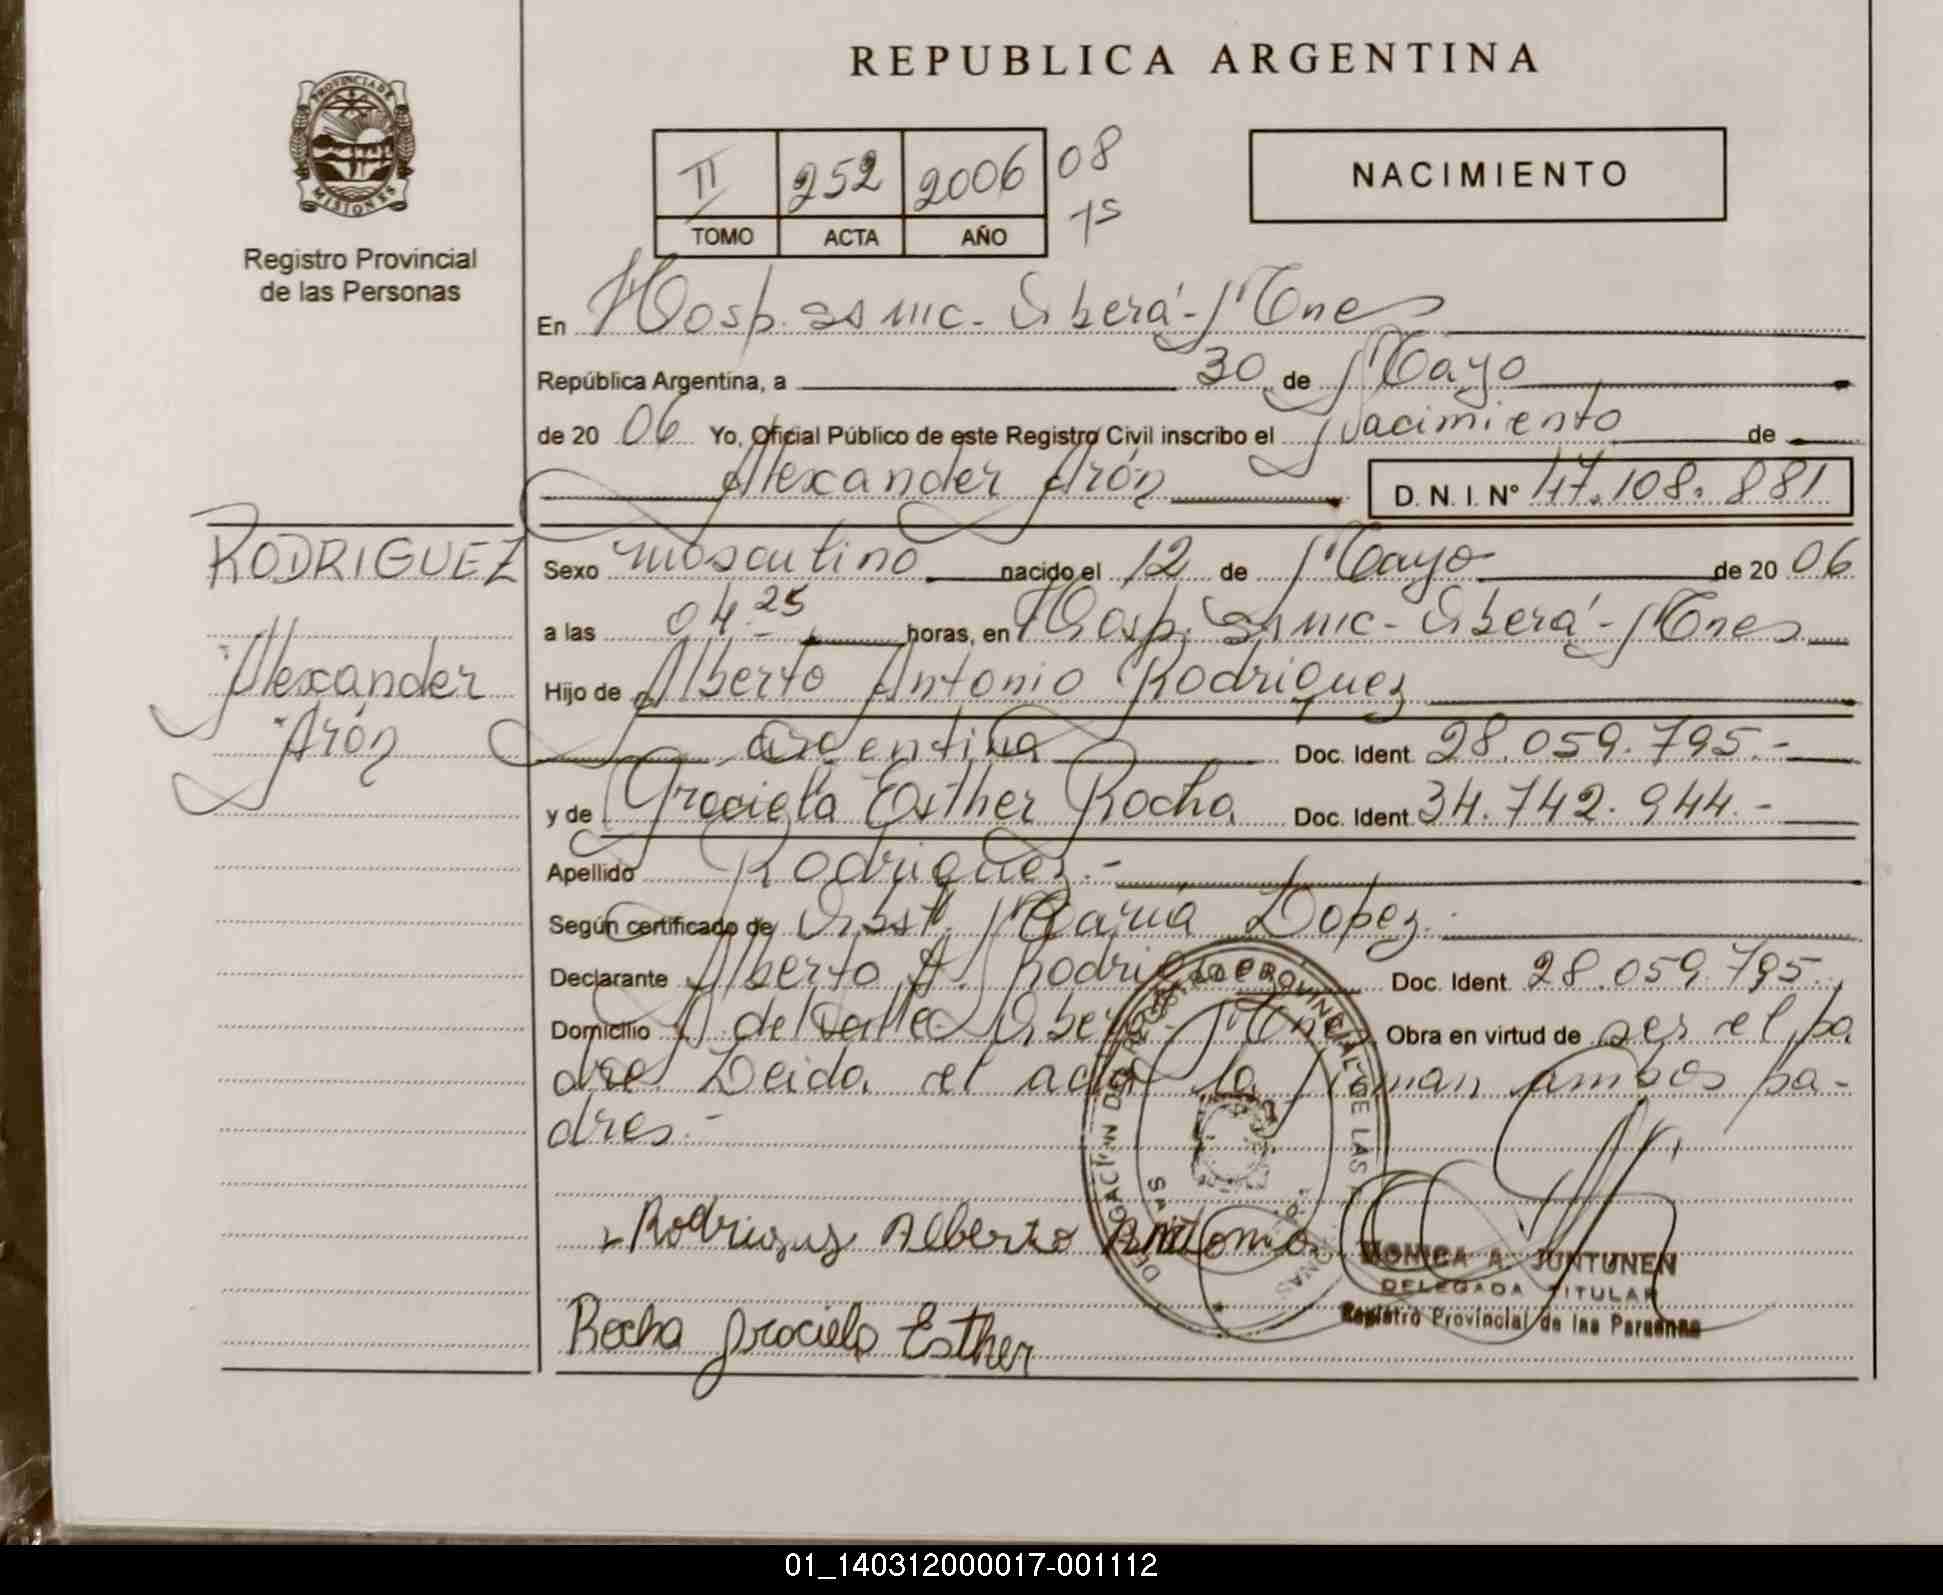 REPUBLICA ARGENTINA
PROVINCIA DE MISIONES
Registro Provincial
de las Personas
II 252 2006 08
15
TOMO ACTA AÑO
NACIMIENTO
En Hosp. Oberá - Mnes
República Argentina, a 30 de Mayo
de 2006 Yo, Oficial Público de este Registro Civil inscribo el Nacimiento de
Alexander Arón D. N. I. Nº 47.108.881
RODRIGUEZ
Alexander
Arón
Sexo masculino nacido el 12 de Mayo de 2006
a las 04.25 horas, en Hosp. Oberá - Mnes
Hijo de Alberto Antonio Rodriguez
argentina Doc. Ident 28.059.795.-
y de Graciela Esther Rocha Doc. Ident 34.742.944.-
Apellido Rodriguez.-
Según certificado de Obst. María Lopez.
Declarante Alberto A. Rodriguez Doc. Ident 28.059.795.
Domicilio del Valle - Oberá - Mnes Obra en virtud de ser el pa
dre Leida el acta la firman ambos pa-
dres.-
DELEGACION DEL REGISTRO PROVINCIAL DE LAS PERSONAS
Rodriguez Alberto Antonio
MONICA A. JUNTUNEN
DELEGADA TITULAR
Registro Provincial de las Personas
Rocha Graciela Esther
01_140312000017-001112